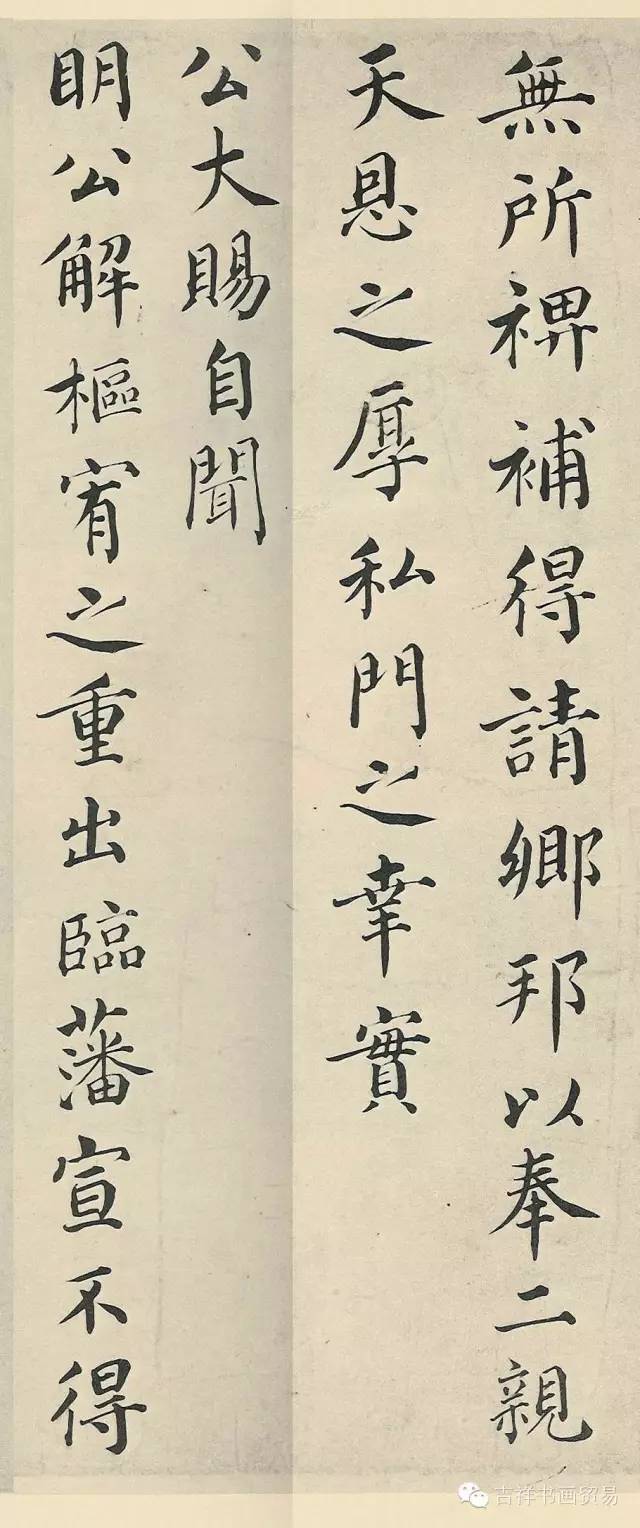 無所裨補得請鄉邦以奉二親
天恩之厚私門之幸實
公大賜自聞
明公解樞宥之重出臨藩宣不得
吉祥书画贸易